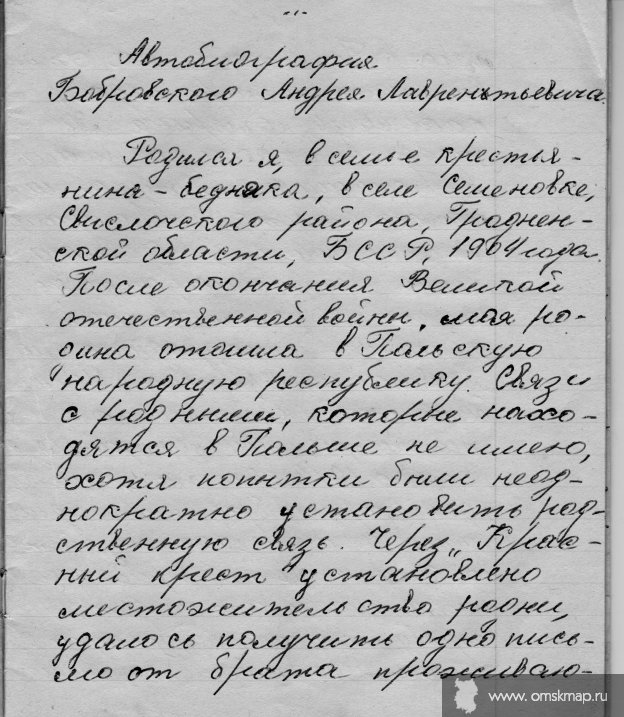 ...
Автобиография
Бобровского Андрея Лаврентьевича.
Родился я, в семье крестья-
нина-бедняка, в селе Семеновке,
Свислочского района, Гроднен-
ской области, БССР, 1904 года.
После окончания Великой
отечественной войны, моя ро-
дина отошла в Польскую
народную республику. Связи
с родными, которые нахо-
дятся в Польше не имею,
хотя попытки были неод-
нократно установить род-
ственную связь. Через „Крас-
ный крест" установлено
местожительство родни,
удалось получить одно пись-
мо от брата проживаю-
www. omskmap.ru